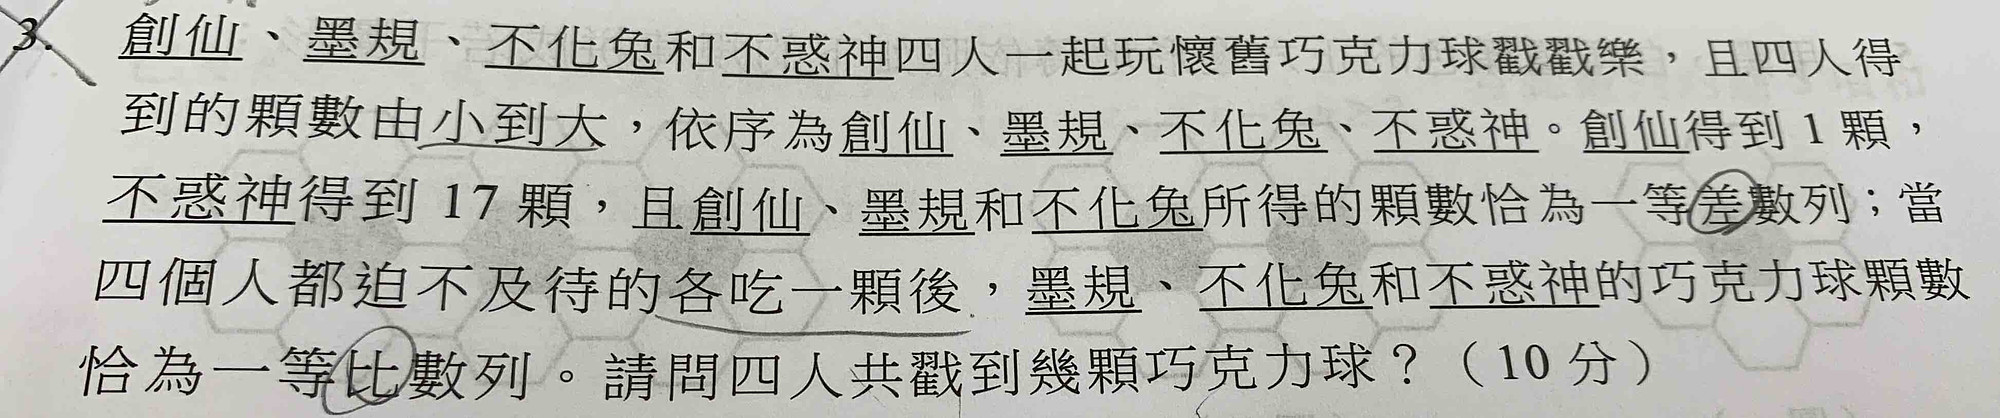 3. 創仙、墨規、不化兔和不惑神四人一起玩懷舊巧克力球戳戳樂，且四人得
到的顆數由小到大，依序為創仙、墨規、不化兔、不惑神。創仙得到 1 顆，
不惑神得到 17 顆，且創仙、墨規和不化兔所得的顆數恰為一等差數列；當
四個人都迫不及待的各吃一顆後，墨規、不化兔和不惑神的巧克力球顆數
恰為一等比數列。請問四人共戳到幾顆巧克力球？（10 分）